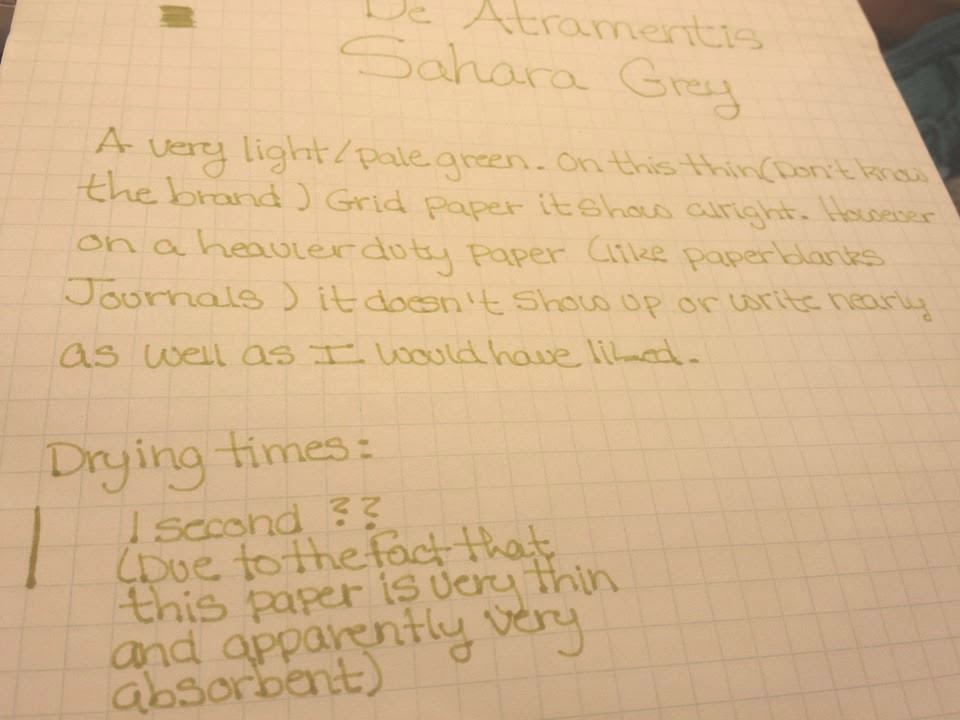 De Atramentis
Sahara Grey
A very light/pale green. On this thin (Don't know
the brand) Grid paper it show alright. However
on a heavier duty paper (like paperblanks
Journals) it doesn't show up or write nearly
as well as I would have liked.
Drying times:
1 second ??
(Due to the fact that
this paper is very thin
and apparently very
absorbent)